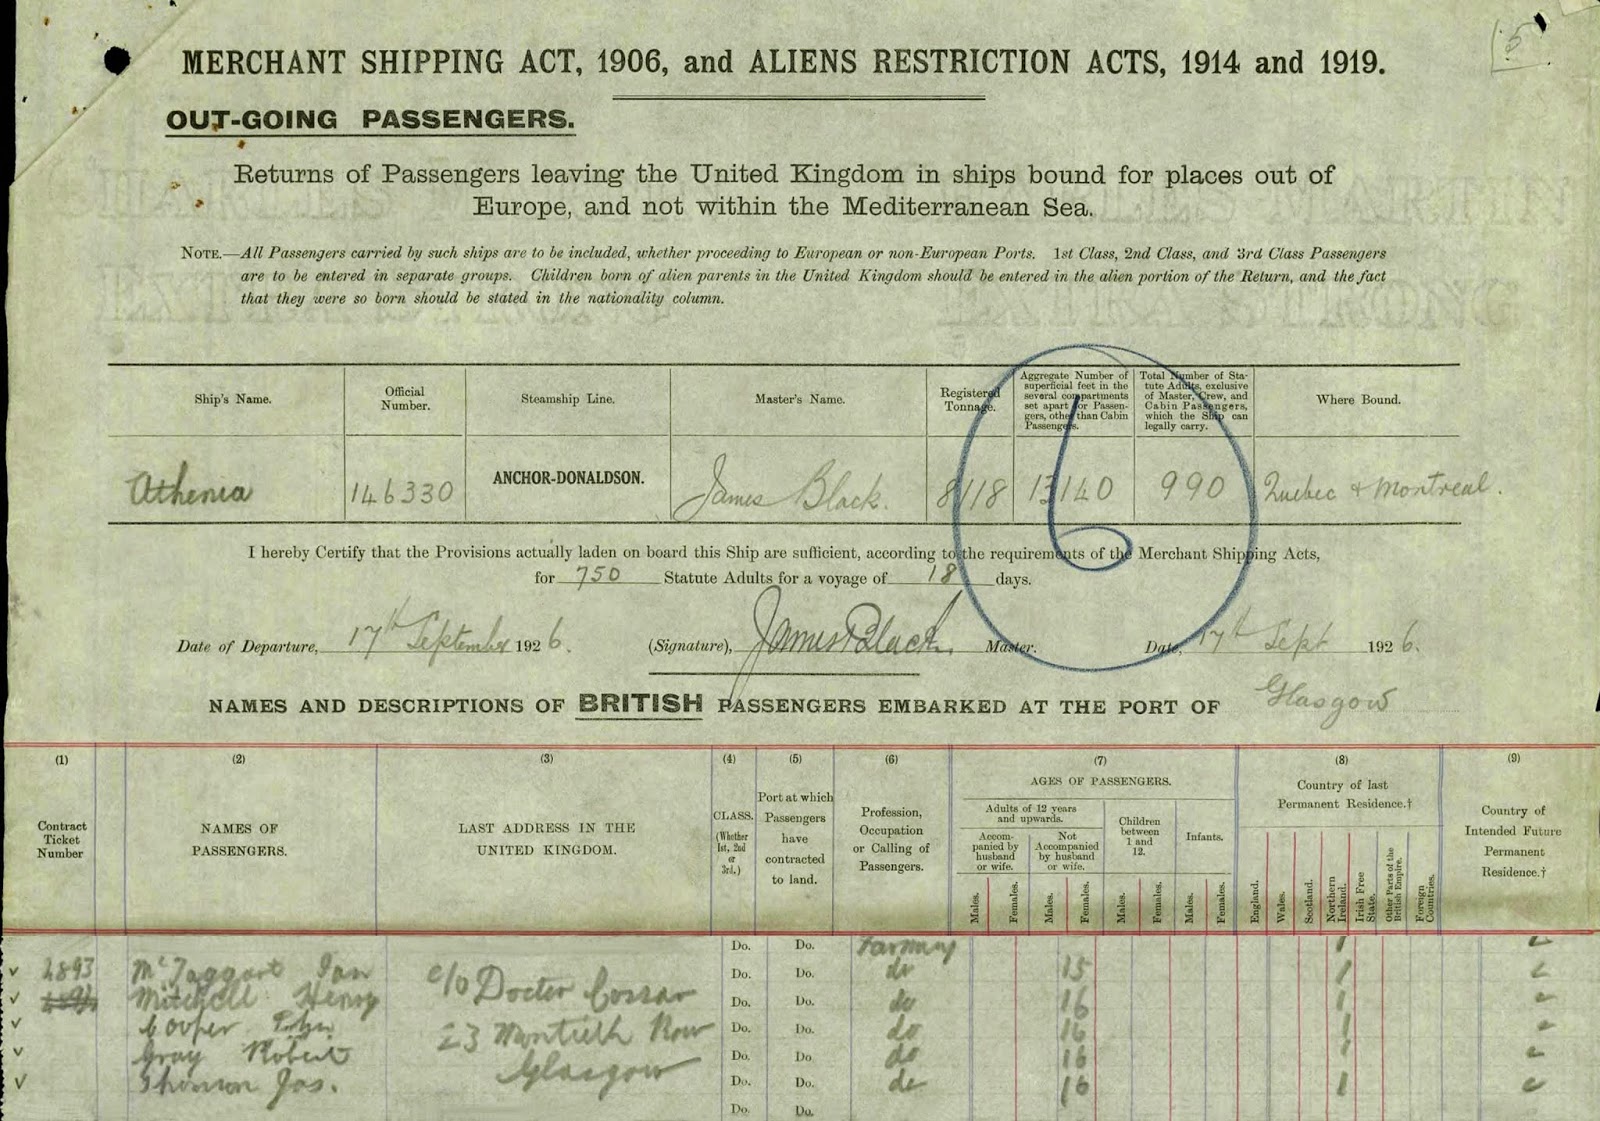 5
MERCHANT SHIPPING ACT, 1906, and ALIENS RESTRICTION ACTS, 1914 and 1919.
OUT-GOING PASSENGERS.
Returns of Passengers leaving the United Kingdom in ships bound for places out of
Europe, and not within the Mediterranean Sea.
NOTE.—All Passengers carried by such ships are to be included, whether proceeding to European or non-European Ports. 1st Class, 2nd Class, and 3rd Class Passengers
are to be entered in separate groups. Children born of alien parents in the United Kingdom should be entered in the alien portion of the Return, and the fact
that they were so born should be stated in the nationality column.
Ship's Name. Official Number. Steamship Line. Master's Name. Registered Tonnage. Aggregate Number of superficial feet in the several compartments set apart for Passengers, other than Cabin Passengers. Total Number of Statute Adults, exclusive of Master, Crew, and Cabin Passengers, which the Ship can legally carry. Where Bound.
Athenia 146330 ANCHOR-DONALDSON. James Black. 8118 13140 990 Quebec & Montreal.
6
I hereby Certify that the Provisions actually laden on board this Ship are sufficient, according to the requirements of the Merchant Shipping Acts,
for 750 Statute Adults for a voyage of 18 days.
Date of Departure, 17th September 1926. (Signature), James Black. Master. Date, 17th Sept 1926.
NAMES AND DESCRIPTIONS OF BRITISH PASSENGERS EMBARKED AT THE PORT OF Glasgow
(1) (2) (3) (4) (5) (6) (7) (8) (9)
Contract Ticket Number
NAMES OF PASSENGERS.
LAST ADDRESS IN THE UNITED KINGDOM.
CLASS. (Whether 1st, 2nd or 3rd.)
Port at which Passengers have contracted to land.
Profession, Occupation or Calling of Passengers.
AGES OF PASSENGERS.
Adults of 12 years and upwards.
Accompanied by husband or wife.
Not Accompanied by husband or wife.
Children between 1 and 12.
Infants.
Males. Females. Males. Females. Males. Females. Males. Females.
Country of last Permanent Residence.†
England. Wales. Scotland. Northern Ireland. Irish Free State. Other Parts of the British Empire. Foreign Countries.
Country of Intended Future Permanent Residence.†
Do. Do. Farming 1
2893 McTaggart Ian c/o Doctor Cossar Do. Do. do 15 1
Mitchell Henry Do. Do. do 16 1
Cooper John 23 Montieth Row Do. Do. do 16 1
Gray Robert Glasgow Do. Do do 16 1
Thomson Jas. Do. Do. do 16 1
Do. Do.